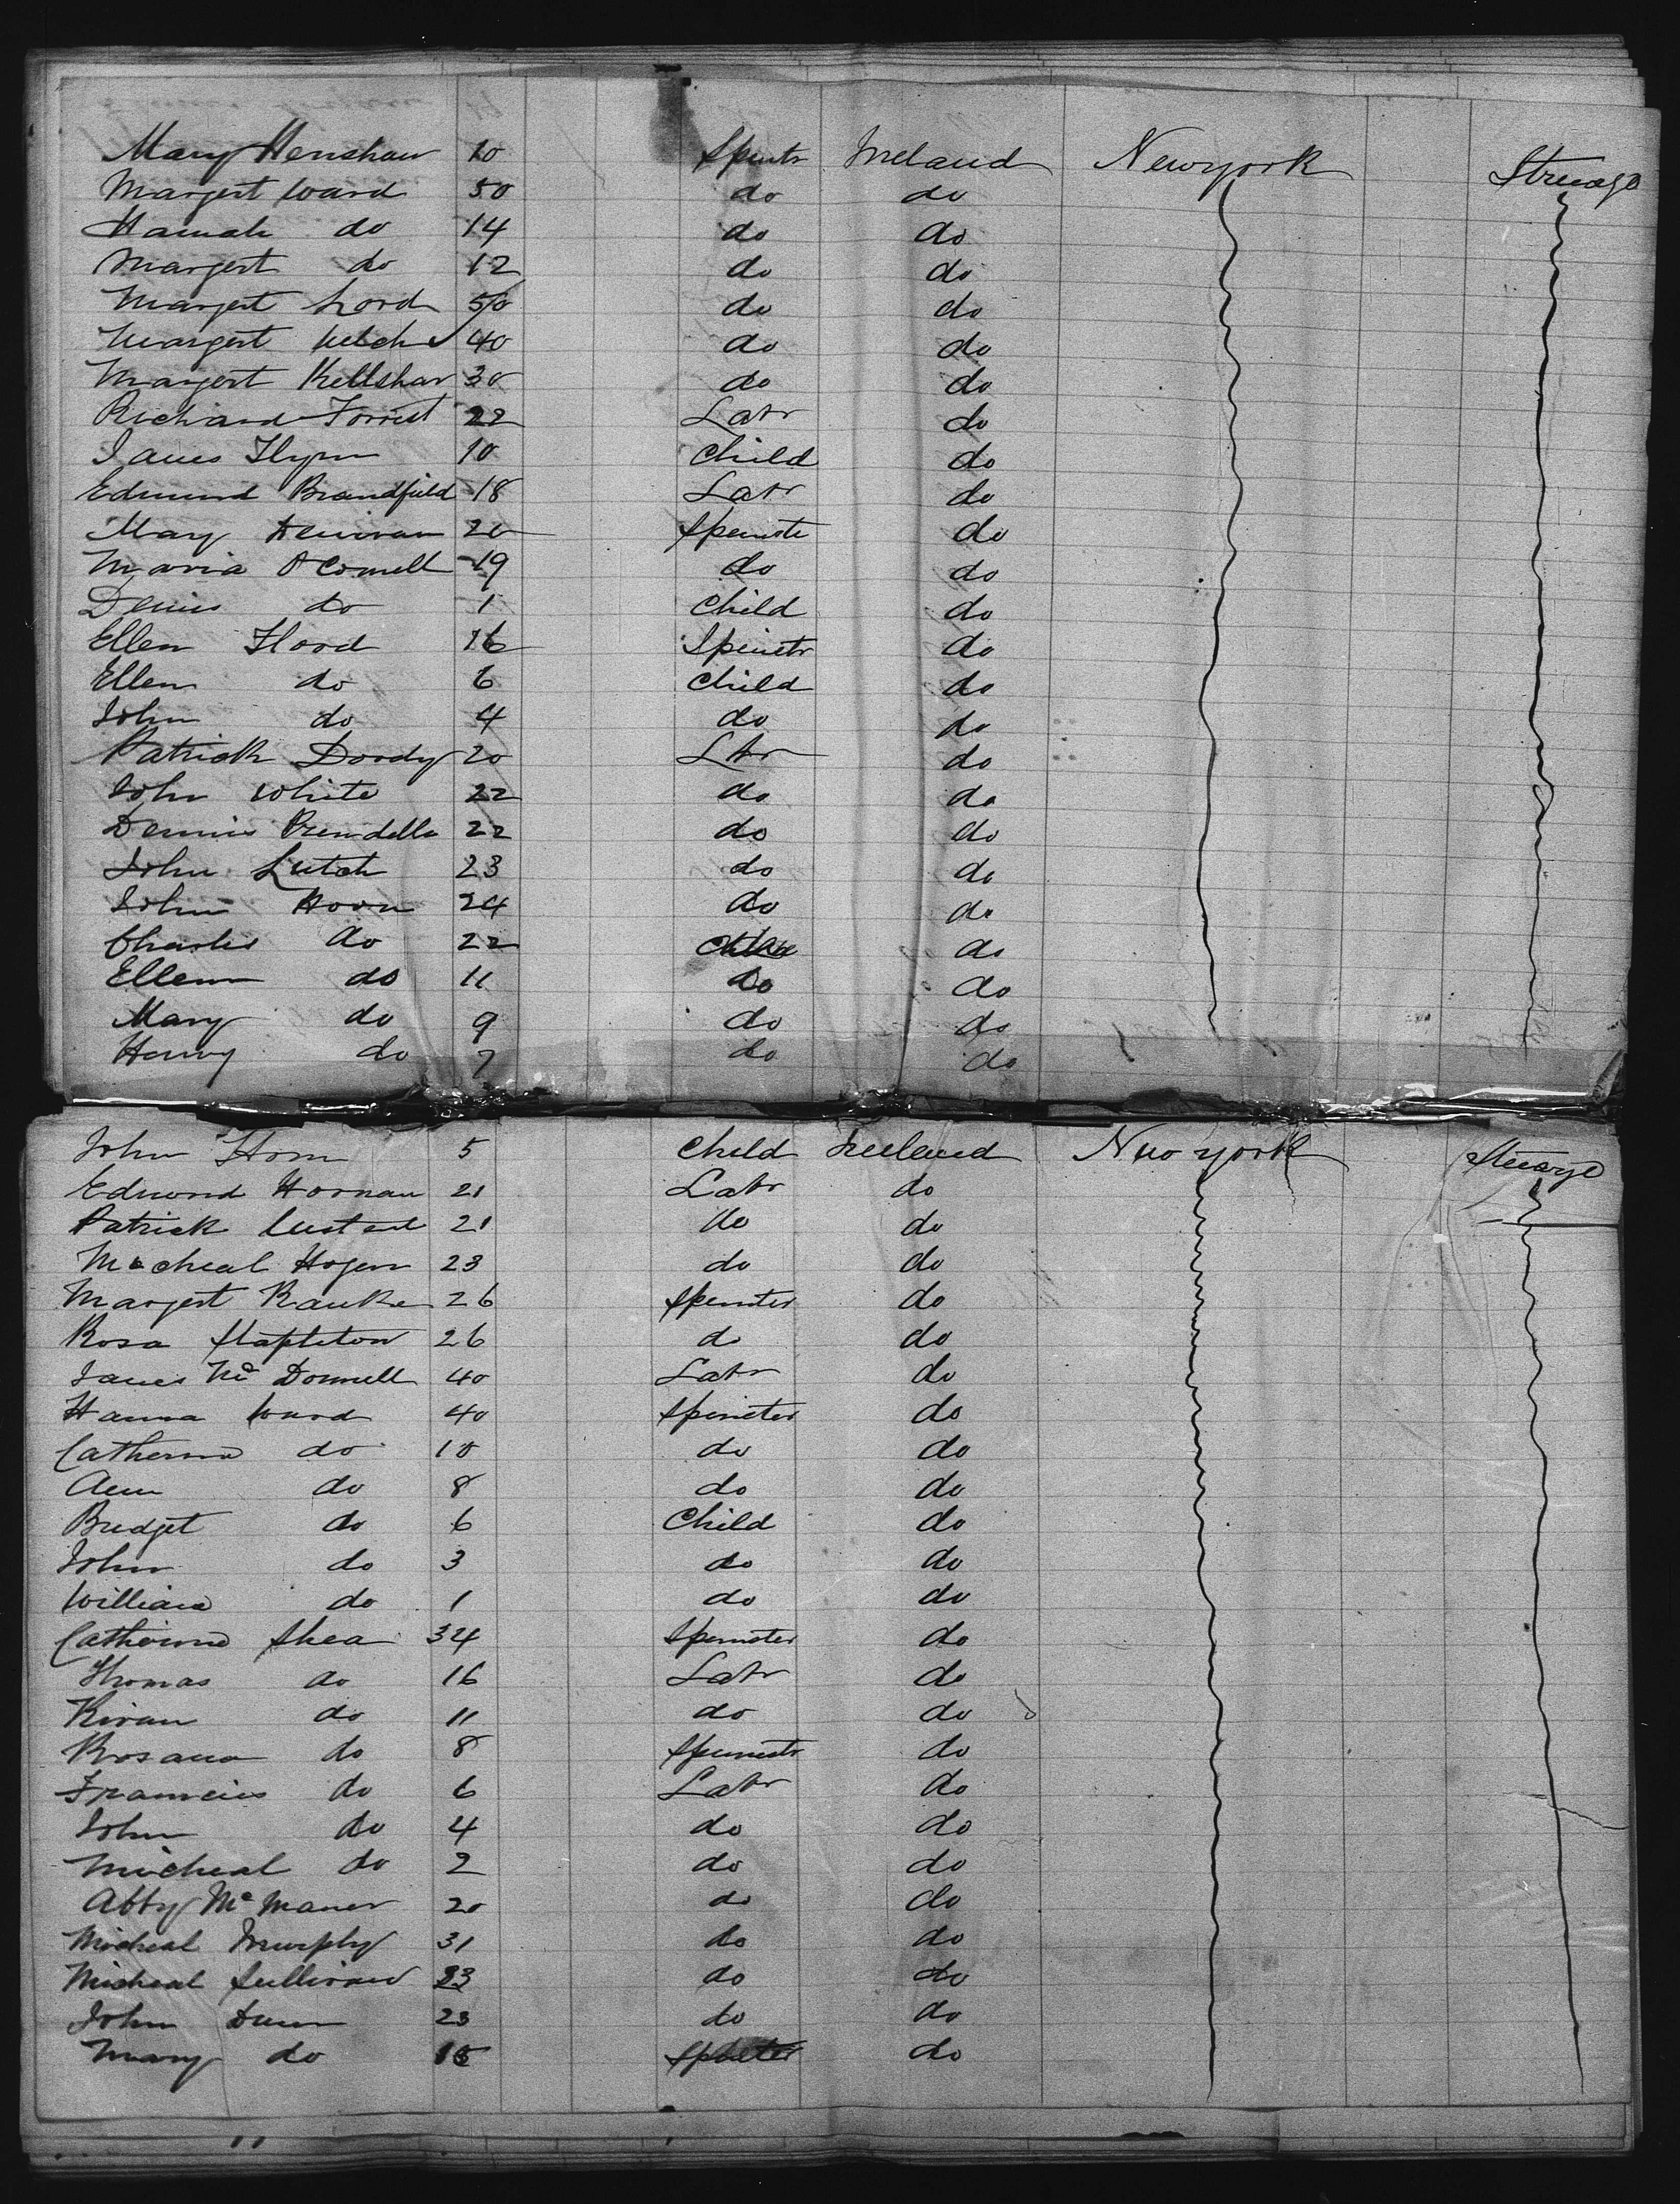 Mary Henshaw 10 Spints Ireland Newyork Steeage
Margert Ward 50 do do
Hannah do 14 do do
Margert do 12 do do
Margert Lord 50 do do
Margert Welch 40 do do
Margert Kellshar 30 do do
Richard Forrest 22 Labr do
James Flynn 10 Child do
Edmund Brandfield 18 Labr do
Mary 20 Spinste do
Maria O Connell 19 do do
Denis do 1 Child do
Ellen Flood 16 Spinstr do
Ellen do 6 Child do
John do 4 do do
Patrick Dordy 20 Lbr do
John White 22 do do
Dennis Prendella 22 do do
John Lutch 23 do do
John Horn 24 do do
Charles do 22 do
Ellenn do 11 do do
Mary do 9 do do
Henry do 7 do do
John Horn 5 Child Ireland New york Steeage
Edmond Hornan 21 Labr do
Patrick Custard 21 do do
Micheal Hogen 23 do do
Margert Rauke 26 Spinster do
Rosa Stapleton 26 do do
James Mc Donnell 40 Labr do
Hanna Ward 40 Spinster do
Catherine do 10 do do
Ann do 8 do do
Bridget do 6 Child do
John do 3 do do
William do 1 do do
Catherine Shea 34 Spinster do
Thomas do 16 Labr do
Kiran do 11 do do
Rosana do 8 Spinestr do
Francies do 6 Labr do
John do 4 do do
Micheal do 2 do do
Abby Mc Maner 20 do do
Micheal Murphy 31 do do
Micheal Sullivan 23 do do
John Dunn 23 do do
Mary do 15 Spinster do